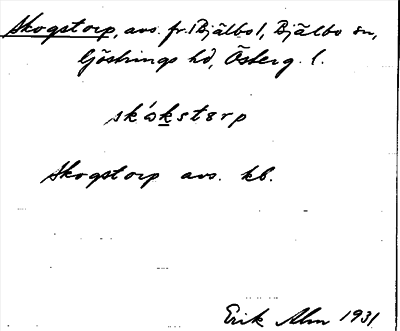 Skogstorp, avs. fr. 1 Bjälbo 1, Bjälbo sn,
Göstrings hd, Österg. l.
skókstorp
Skogstorp avs. kb.
Erik Alm 1931